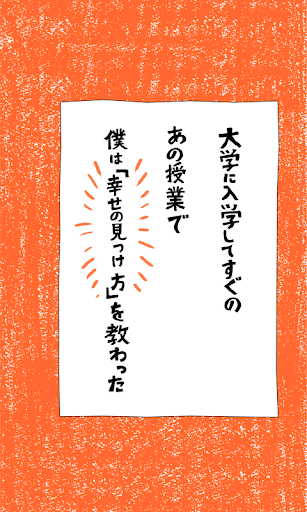 大学に入学してすぐの
あの授業で
僕は「幸せの見つけ方」を教わった